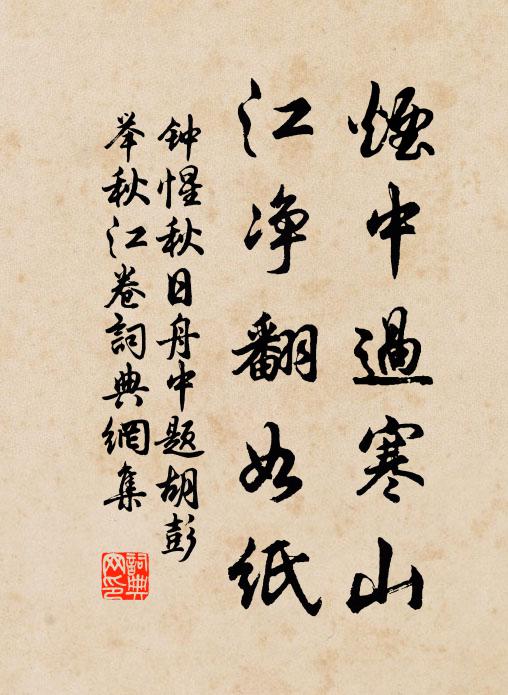 煙中過寒山
江净翻如紙
钟惺秋日舟中题胡彭
举秋江卷詞典網集
詞典網印